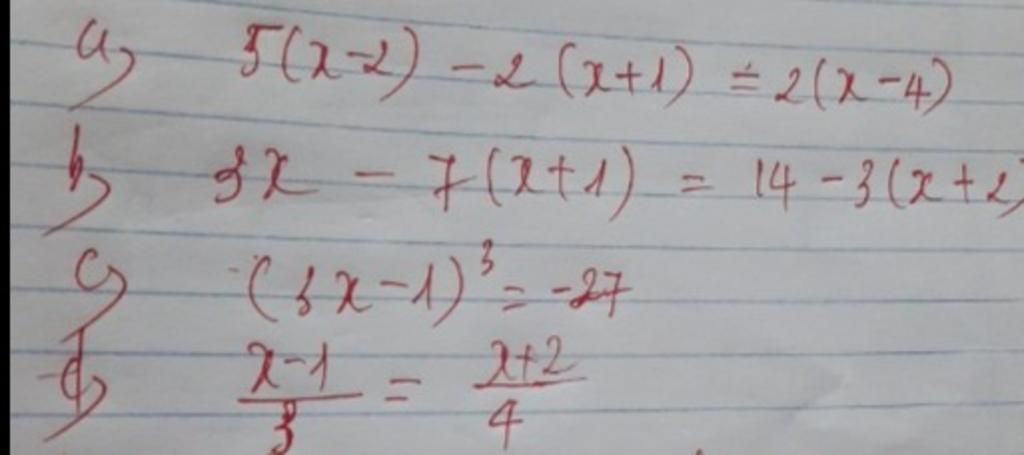 a, 5(x-2) - 2(x+1) = 2(x-4)
b, 3x - 7(x+1) = 14 - 3(x+2)
c, (3x-1)³ = -27
d, (x-1)/3 = (x+2)/4